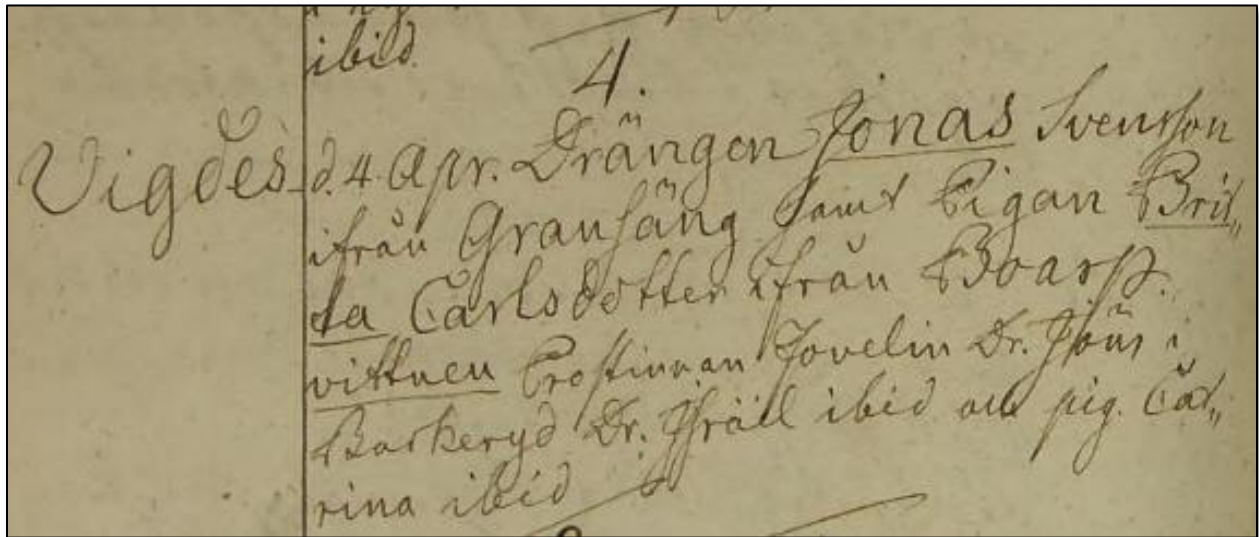 ibid.
4.
Vigdes d. 4. Apr. Drängen Jonas Svensson
ifrån Granhäng samt Pigan Brit„
ta Carlsdotter ifrån Boarp.
vittnen Prostinnan Jovelin Dr. Jöns i
Barkeryd Dr. Israël ibid och pig. Cat„
rina ibid